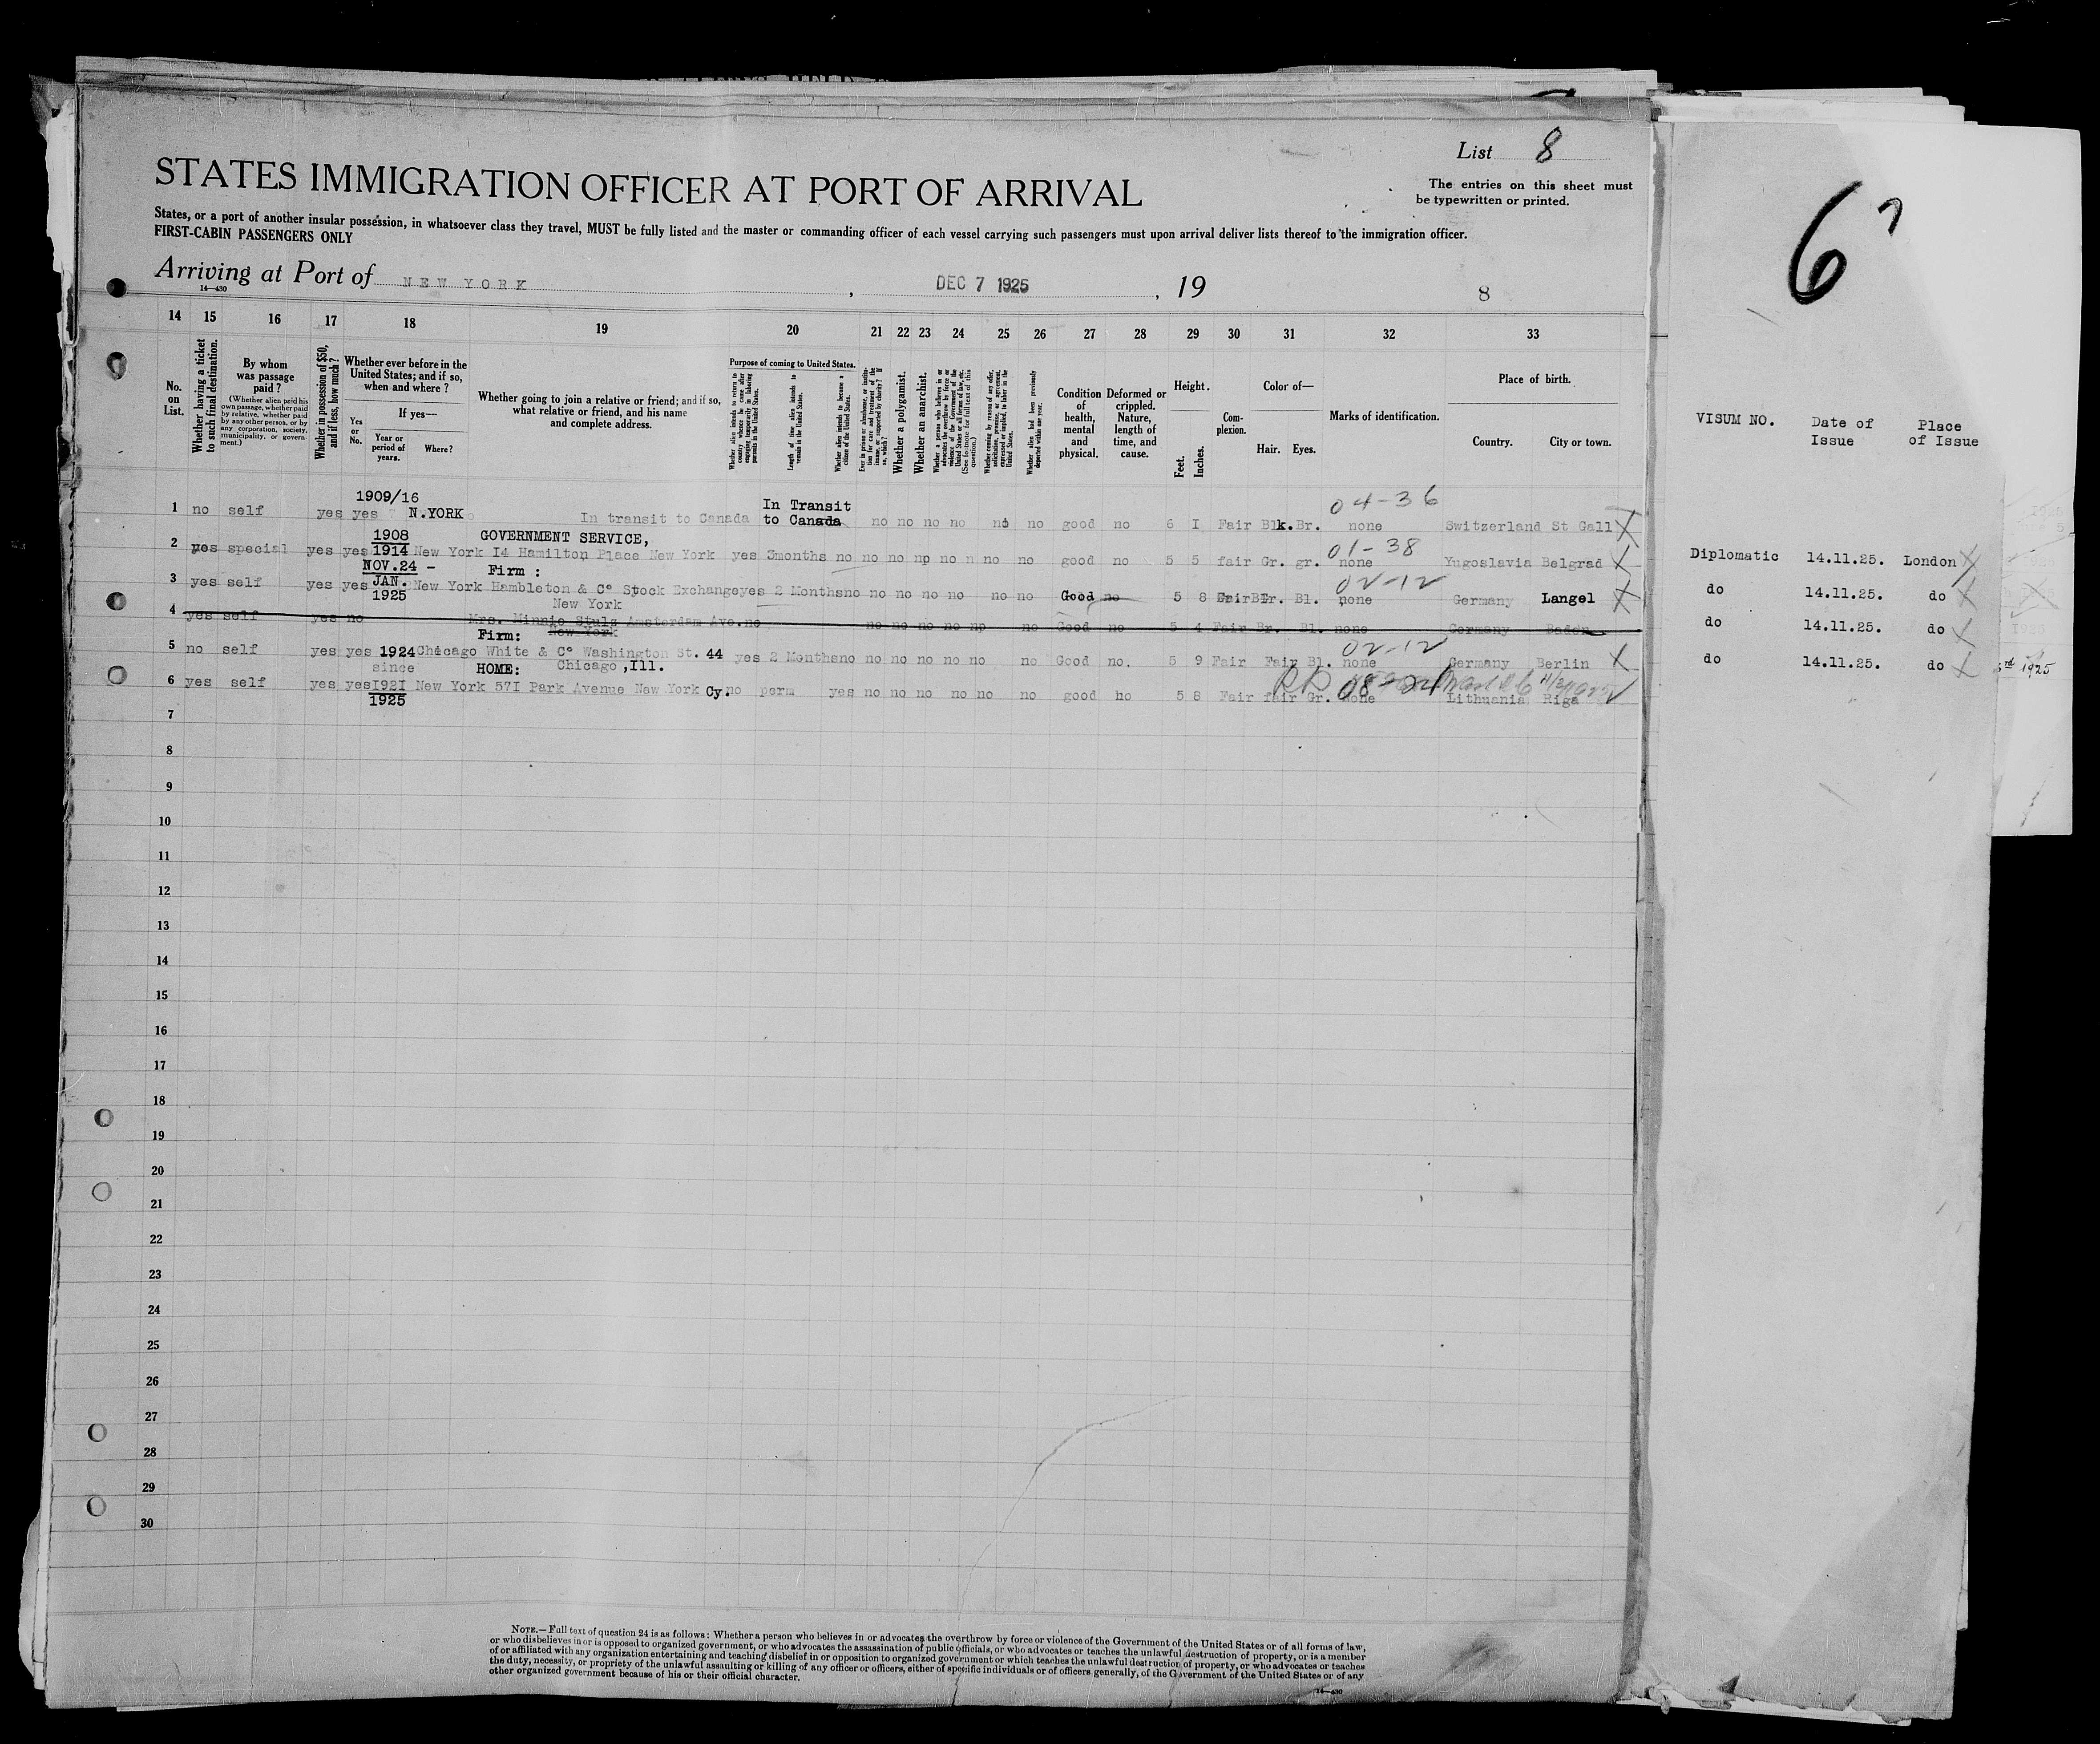 List 8
STATES IMMIGRATION OFFICER AT PORT OF ARRIVAL
The entries on this sheet must
be typewritten or printed.
States, or a port of another insular possession, in whatsoever class they travel, MUST be fully listed and the master or commanding officer of each vessel carrying such passengers must upon arrival deliver lists thereof to the immigration officer.
FIRST-CABIN PASSENGERS ONLY
6
Arriving at Port of NEW YORK, DEC 7 1925, 19
14—430
8
14 15 16 17 18 19 20 21 22 23 24 25 26 27 28 29 30 31 32 33
No. on List.
Whether having a ticket to such final destination.
By whom was passage paid?
(Whether alien paid his own passage, whether paid by relative, whether paid by any other person, or by any corporation, society, municipality, or government.)
Whether in possession of $50, and if less, how much?
Whether ever before in the United States; and if so, when and where?
Yes or No.
If yes—
Year or period of years.
Where?
Whether going to join a relative or friend; and if so, what relative or friend, and his name and complete address.
Purpose of coming to United States.
Whether alien intends to return to country whence he came after engaging temporarily in laboring pursuits in the United States.
Length of time alien intends to remain in the United States.
Whether alien intends to become a citizen of the United States.
Ever in prison or almshouse, or institution for care and treatment of the insane, or supported by charity? If so, which?
Whether a polygamist.
Whether an anarchist.
Whether a person who believes in or advocates the overthrow by force or violence of the Government of the United States or all forms of law, etc. (See footnote for full text of this question.)
Whether coming by reason of any offer, solicitation, promise, or agreement, expressed or implied, to labor in the United States.
Whether alien had been previously deported within one year.
Condition of health, mental and physical.
Deformed or crippled. Nature, length of time, and cause.
Height.
Feet. Inches.
Complexion.
Color of—
Hair. Eyes.
Marks of identification.
Place of birth.
Country. City or town.
VISUM NO. Date of Issue Place of Issue
1909/16 In Transit 04-36
1 no self yes yes N.YORK In transit to Canada to Canada no no no no no no good no 6 I Fair Blk. Br. none Switzerland St Gall X
1908 GOVERNMENT SERVICE, 01-38
2 yes special yes yes 1914 New York I4 Hamilton Place New York yes 3months no no no no no no no good no 5 5 fair Gr. gr. none Yugoslavia Belgrad X Diplomatic 14.11.25. London X
NOV.24 - Firm : 02-12
3 yes self yes yes JAN. 1925 New York Hambleton & Co Stock Exchange yes 2 Months no no no no no no no Good no 5 8 Fair Br. Bl. none Germany Langel X do 14.11.25. do X
New York
4 yes self yes no Mrs. Minnie Stulz Amsterdam Ave. no no no no no no no Good no 5 4 Fair Br. Bl. none Germany Baden do 14.11.25. do X
Firm: New York 02-12
5 no self yes yes 1924 Chicago White & Co Washington St. 44 yes 2 Months no no no no no no no Good no. 5 9 Fair Fair Bl. none Germany Berlin X do 14.11.25. do X
since HOME: Chicago ,Ill. 08-24
6 yes self yes yes I92I New York 57I Park Avenue New York Cy. no perm yes no no no no no no good no 5 8 Fair fair Gr. none Lithuania Riga
1925
7
8
9
10
11
12
13
14
15
16
17
18
19
20
21
22
23
24
25
26
27
28
29
30
NOTE.—Full text of question 24 is as follows: Whether a person who believes in or advocates the overthrow by force or violence of the Government of the United States or of all forms of law,
or who disbelieves in or is opposed to organized government, or who advocates the assassination of public officials, or who advocates or teaches the unlawful destruction of property, or is a member
of or affiliated with any organization entertaining and teaching disbelief in or opposition to organized government or which teaches the unlawful destruction of property, or who advocates or teaches
the duty, necessity, or propriety of the unlawful assaulting or killing of any officer or officers, either of specific individuals or of officers generally, of the Government of the United States or of any
other organized government because of his or their official character.
14—430